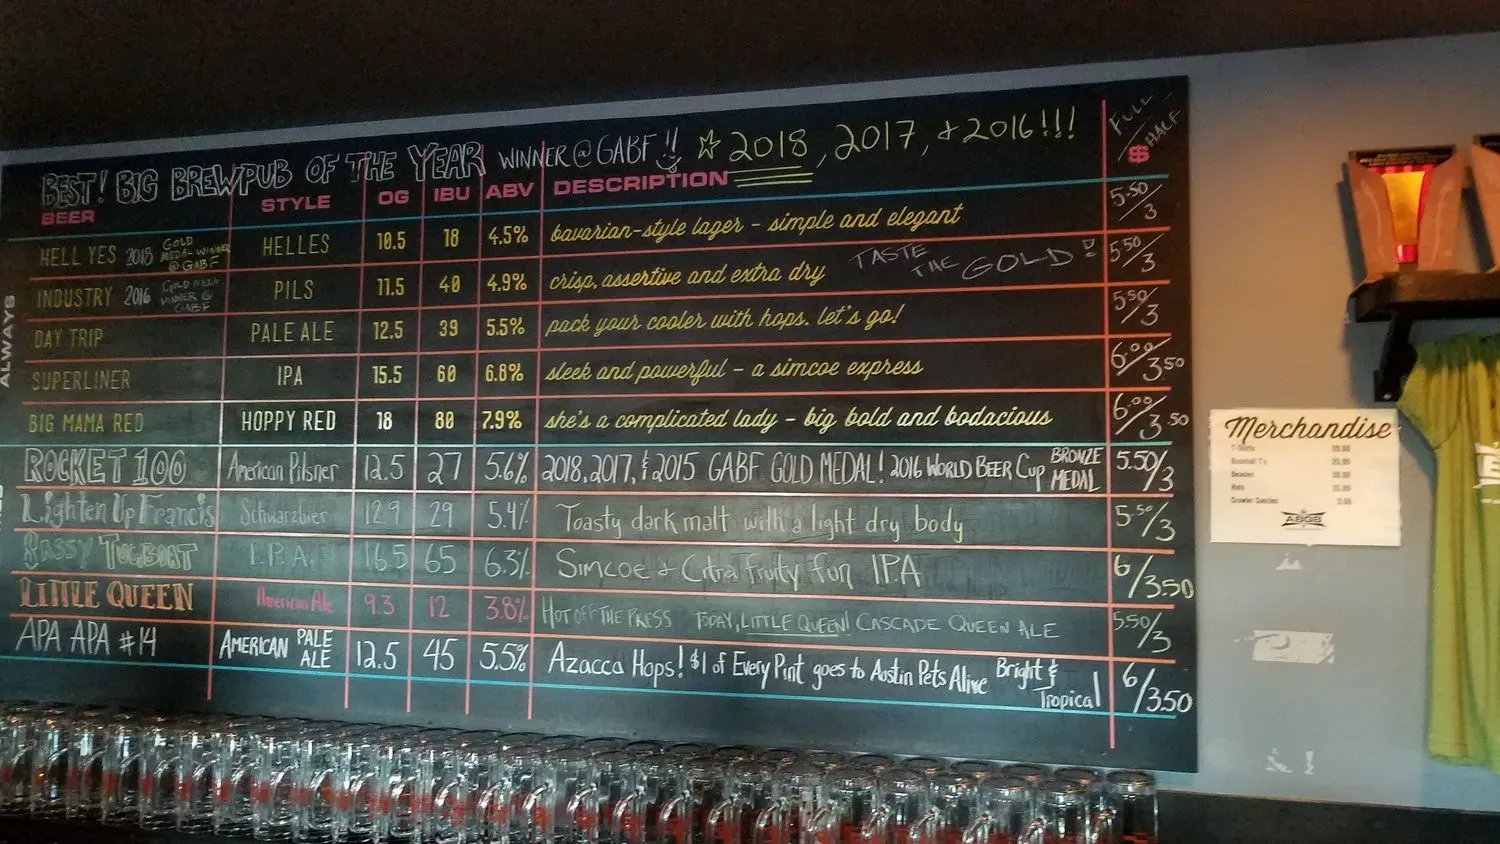 BEST! BIG BREWPUB OF THE YEAR WINNER @ GABF!! ☆ 2018, 2017, & 2016!!!
FULL / HALF
BEER STYLE OG IBU ABV DESCRIPTION $
ALWAYS
HELL YES 2018 GOLD MEDAL WINNER @ GABF HELLES 10.5 18 4.5% bavarian-style lager - simple and elegant 5.50/3
INDUSTRY 2016 GOLD MEDAL WINNER @ GABF PILS 11.5 40 4.9% crisp, assertive and extra dry TASTE THE GOLD! 5.50/3
DAY TRIP PALE ALE 12.5 39 5.5% pack your cooler with hops. let's go! 5.50/3
SUPERLINER IPA 15.5 60 6.8% sleek and powerful - a simcoe express 6.00/3.50
BIG MAMA RED HOPPY RED 18 80 7.9% she's a complicated lady - big bold and bodacious 6.00/3.50
ROCKET 100 American Pilsner 12.5 27 5.6% 2018, 2017, & 2015 GABF GOLD MEDAL! 2016 WORLD BEER CUP BRONZE MEDAL 5.50/3
Lighten Up Francis Schwarzbier 12.9 29 5.4% Toasty dark malt with a light dry body 5.50/3
SASSY TUGBOAT I.P.A. 16.5 65 6.3% Simcoe & Citra fruity fun IPA 6/3.50
LITTLE QUEEN American Ale 9.3 12 3.8% HOT OFF THE PRESS TODAY, LITTLE QUEEN! CASCADE QUEEN ALE 5.50/3
APA APA #14 AMERICAN PALE ALE 12.5 45 5.5% Azacca Hops! $1 of Every Pint goes to Austin Pets Alive Bright & Tropical 6/3.50
Merchandise
T-Shirts
Baseball T's
Beanies
Hats
Growler Koozies
ABGB